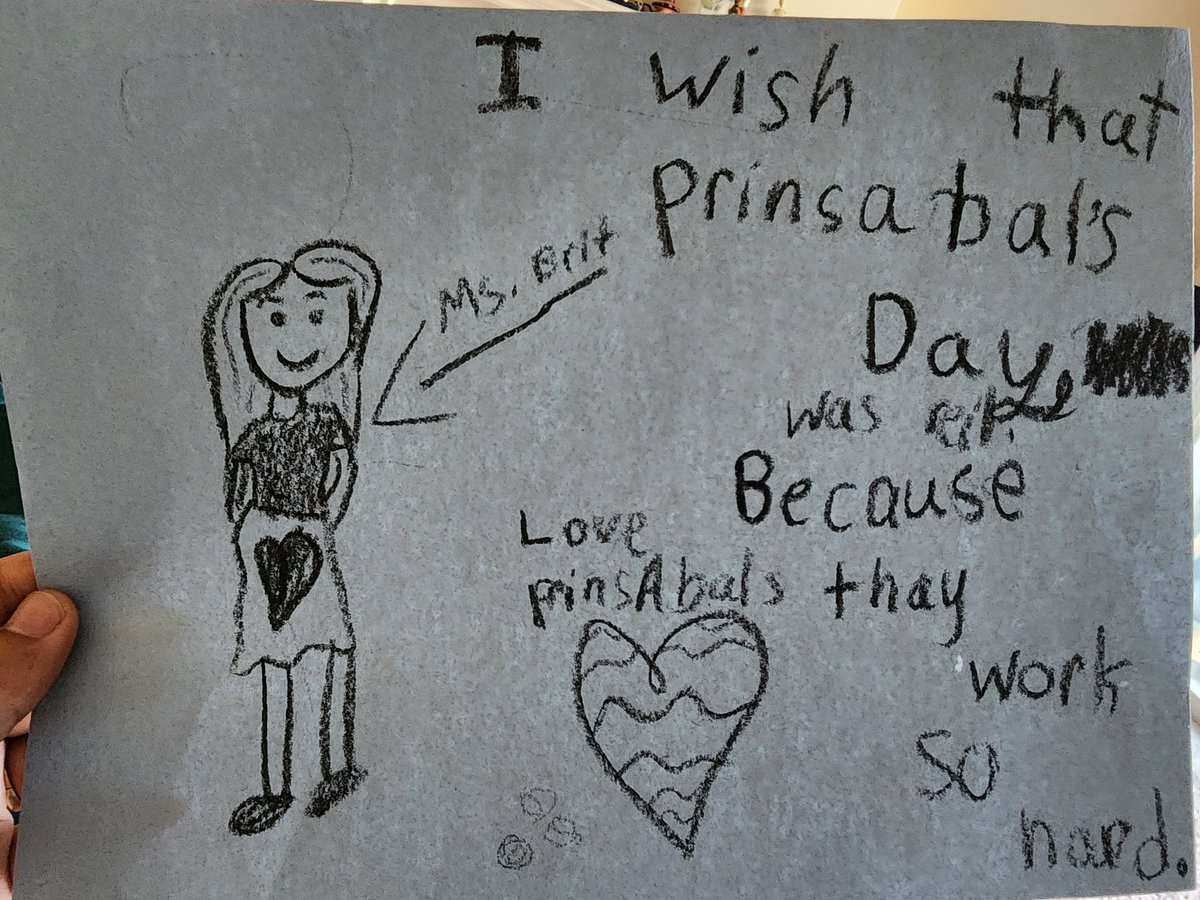 I wish that
prinsabal's
Day
was
Because
thay
work
so
hard.
Ms. Brit
Love
prinsAbals